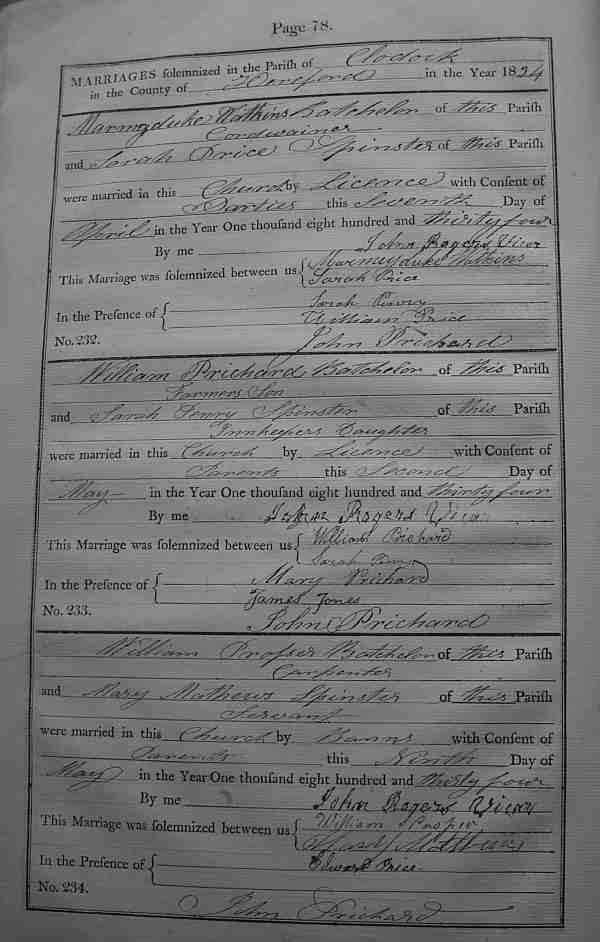 Page 78.
MARRIAGES solemnized in the Parish of Clodock
in the County of Hereford in the Year 1834
Marmyduke Watkins Batchelor of this Parish
Cordwainer
and Sarah Price Spinster of this Parish
were married in this Church by Licence with Consent of
Parties this Seventh Day of
April in the Year One thousand eight hundred and thirty four
By me John Rogers Vicar
This Marriage was solemnized between us { Marmyduke Watkins
Sarah Price
In the Presence of { Sarah
William Price
No. 232. John Prichard
William Prichard Batchelor of this Parish
Farmers Son
and Sarah Penry Spinster of this Parish
Innkeepers Daughter
were married in this Church by Licence with Consent of
Parents this Second Day of
May in the Year One thousand eight hundred and thirty four
By me John Rogers Vicar
This Marriage was solemnized between us { William Prichard
Sarah Penry
In the Presence of { Mary Prichard
James Jones
No. 233. John Prichard
William Prosser Batchelor of this Parish
Carpenter
and Mary Mathews Spinster of this Parish
Servant
were married in this Church by Banns with Consent of
Parents this Ninth Day of
May in the Year One thousand eight hundred and thirty four
By me John Rogers Vicar
This Marriage was solemnized between us { William Prosser
Mathews
In the Presence of { Edward Price
No. 234.
John Prichard